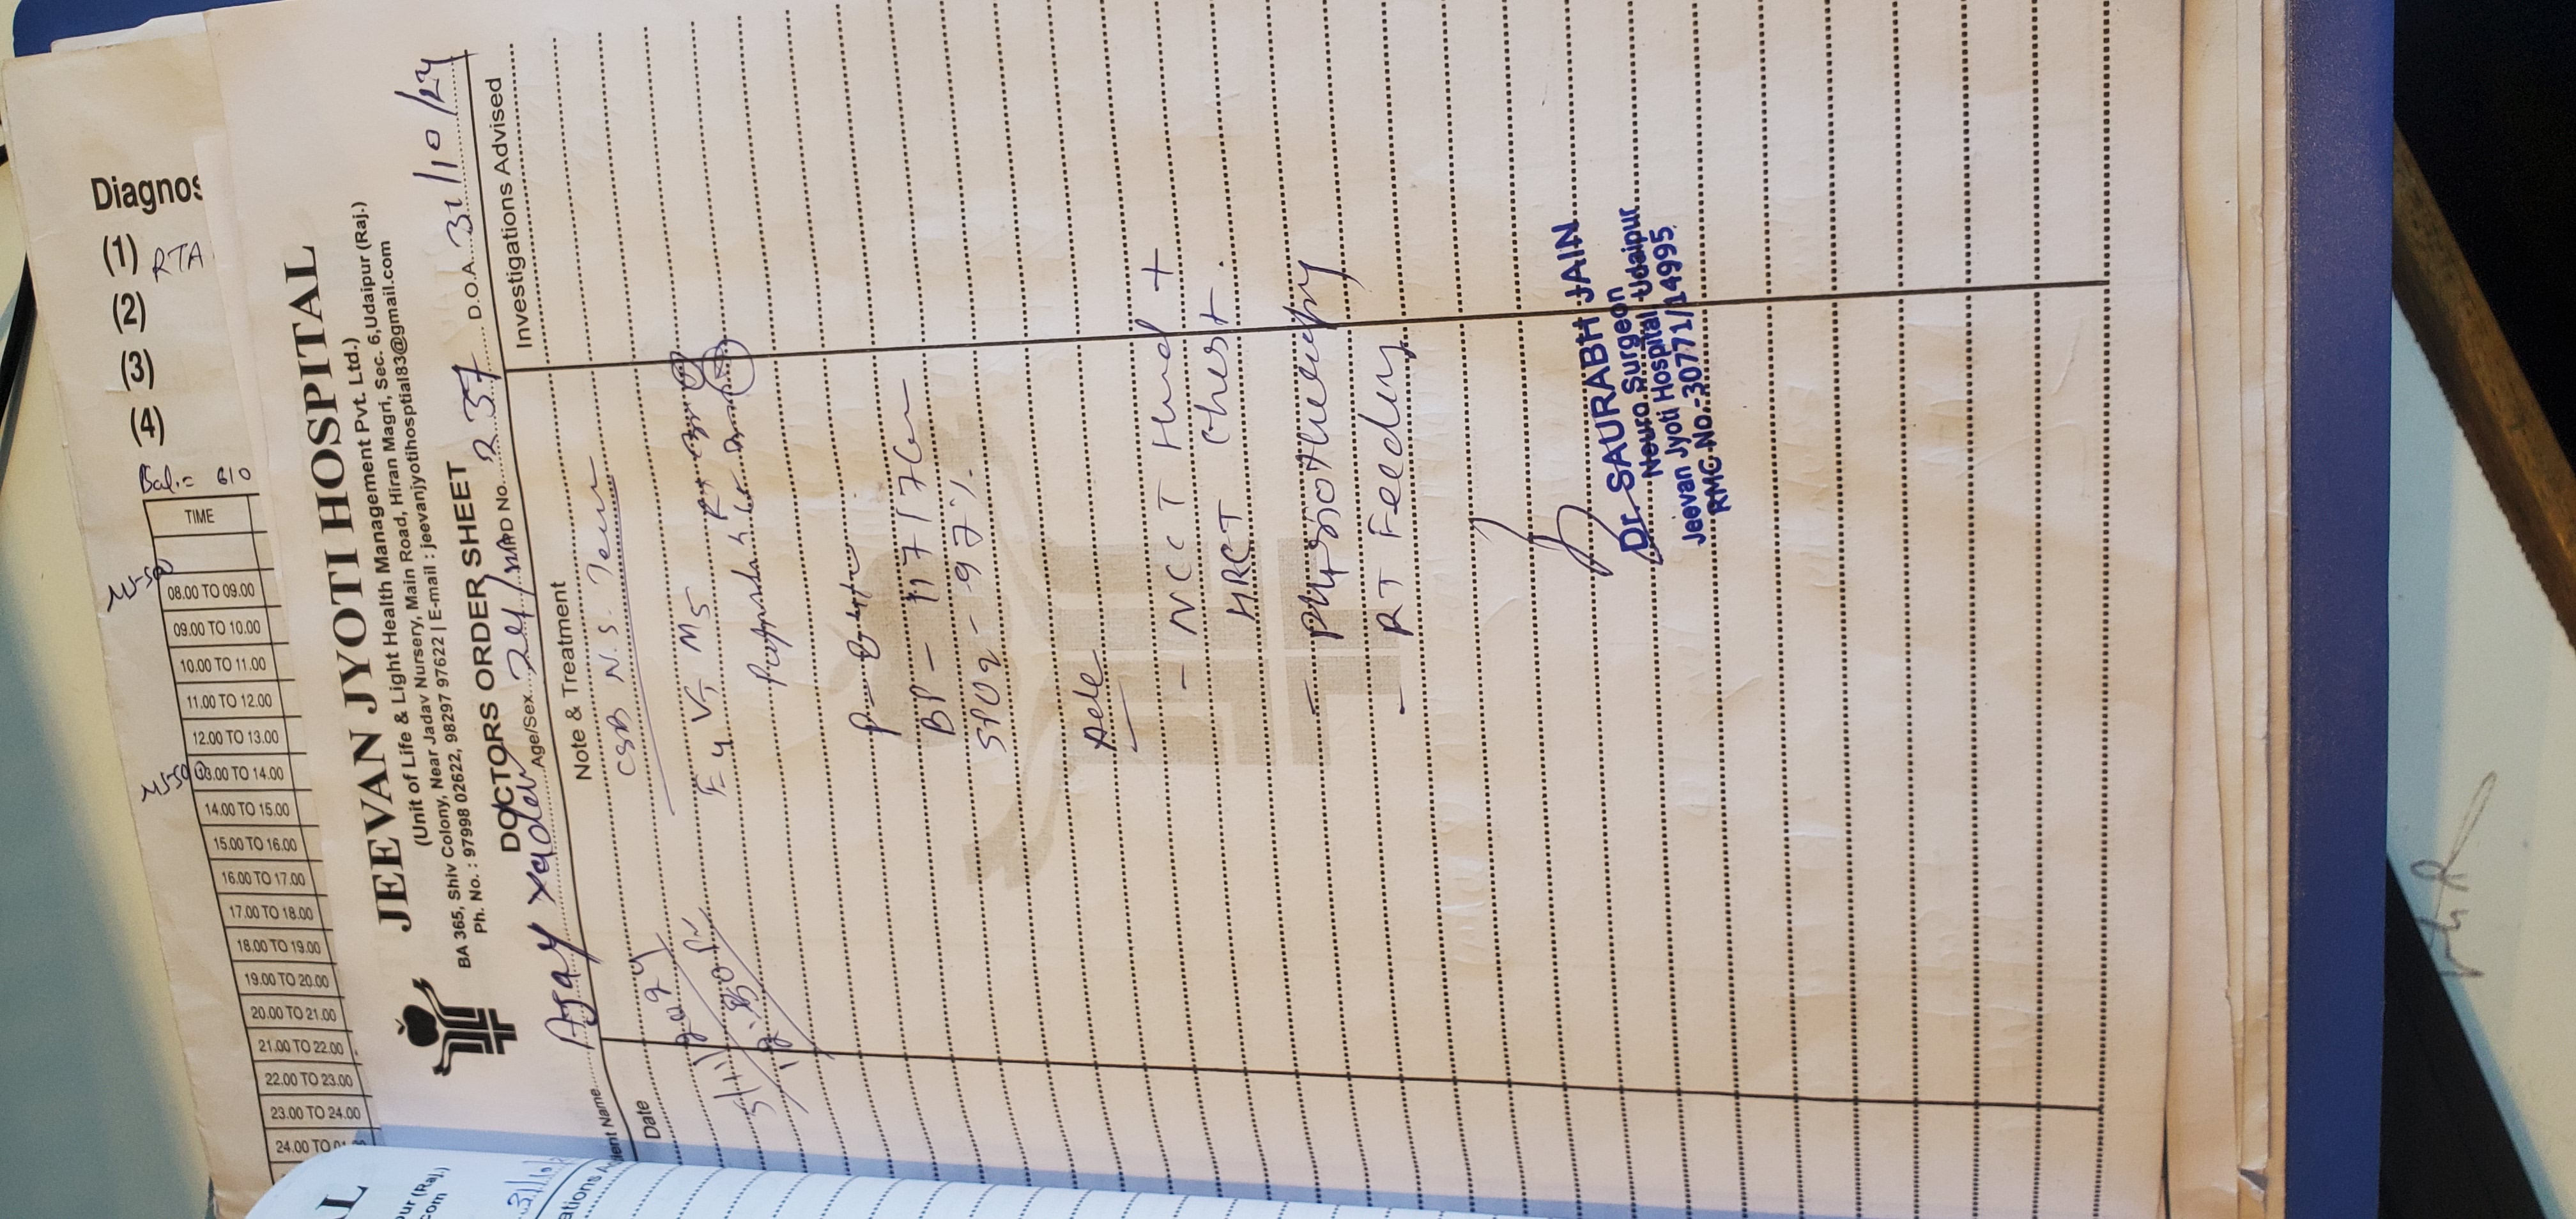 Diagnos
(1) RTA
(2)
(3)
(4)
Bal:- 610
TIME
08.00 TO 09.00
09.00 TO 10.00
10.00 TO 11.00
11.00 TO 12.00
12.00 TO 13.00
13.00 TO 14.00
14.00 TO 15.00
15.00 TO 16.00
16.00 TO 17.00
17.00 TO 18.00
18.00 TO 19.00
19.00 TO 20.00
20.00 TO 21.00
21.00 TO 22.00
22.00 TO 23.00
23.00 TO 24.00
24.00 TO
JEEVAN JYOTI HOSPITAL
(Unit of Life & Light Health Management Pvt. Ltd.)
BA 365, Shiv Colony, Near Jadav Nursery, Main Road, Hiran Magri, Sec. 6,Udaipur (Raj.)
Ph. No. : 97998 02622, 98297 97622 | E-mail : jeevanjyotihosptial83@gmail.com
DOCTORS ORDER SHEET
ient Name Ajay Yadav Age/Sex IPD No. 237 D.O.A. 31/10/24
Date Note & Treatment Investigations Advised
CSB N.S. Team
E4 VT M5
BP - 117/76
SPO2 - 97%
Adv
- NCCT Head +
HRCT Chest.
- Physiotherapy
- RT Feeding
Dr. SAURABH JAIN
Neuro Surgeon
Jeevan Jyoti Hospital Udaipur
RMC No.-30771/14995